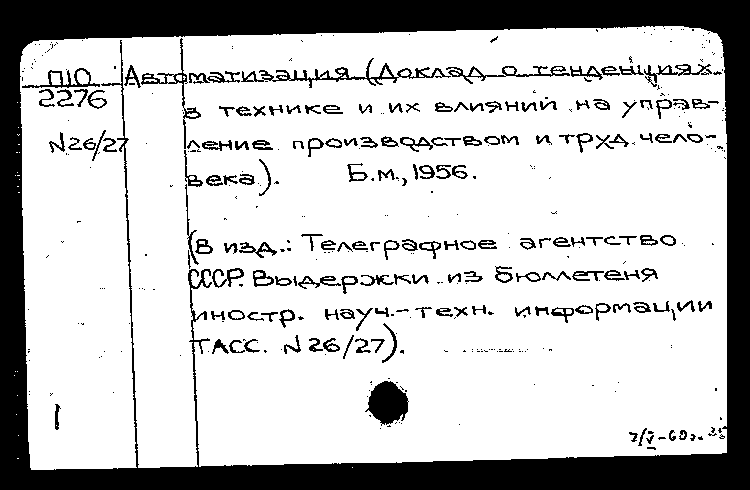 П10 Автоматизация (Доклад о тенденциях
2276 в технике и их влияний на управ-
N26/27 ление производством и труд чело-
века). Б.м., 1956.
(В изд.: Телеграфное агентство
СССР. Выдержки из бюллетеня
иностр. науч.-техн. информации
ТАСС. N26/27).
1
7/V-60г.